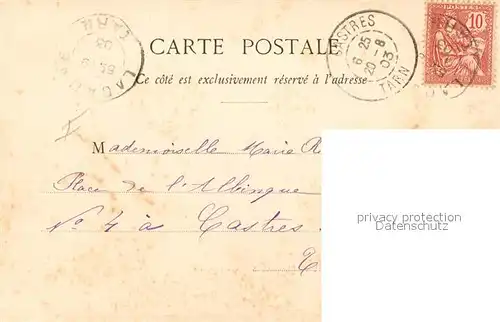 CARTE POSTALE
Ce côté est exclusivement réservé à l'adresse
CASTRES
6 25
20 - 8
03
TARN
POSTES
10
LACAUNE
TARN
Mademoiselle Marie
Place de l'Albinque
No 4 à Castres
privacy protection
Datenschutz